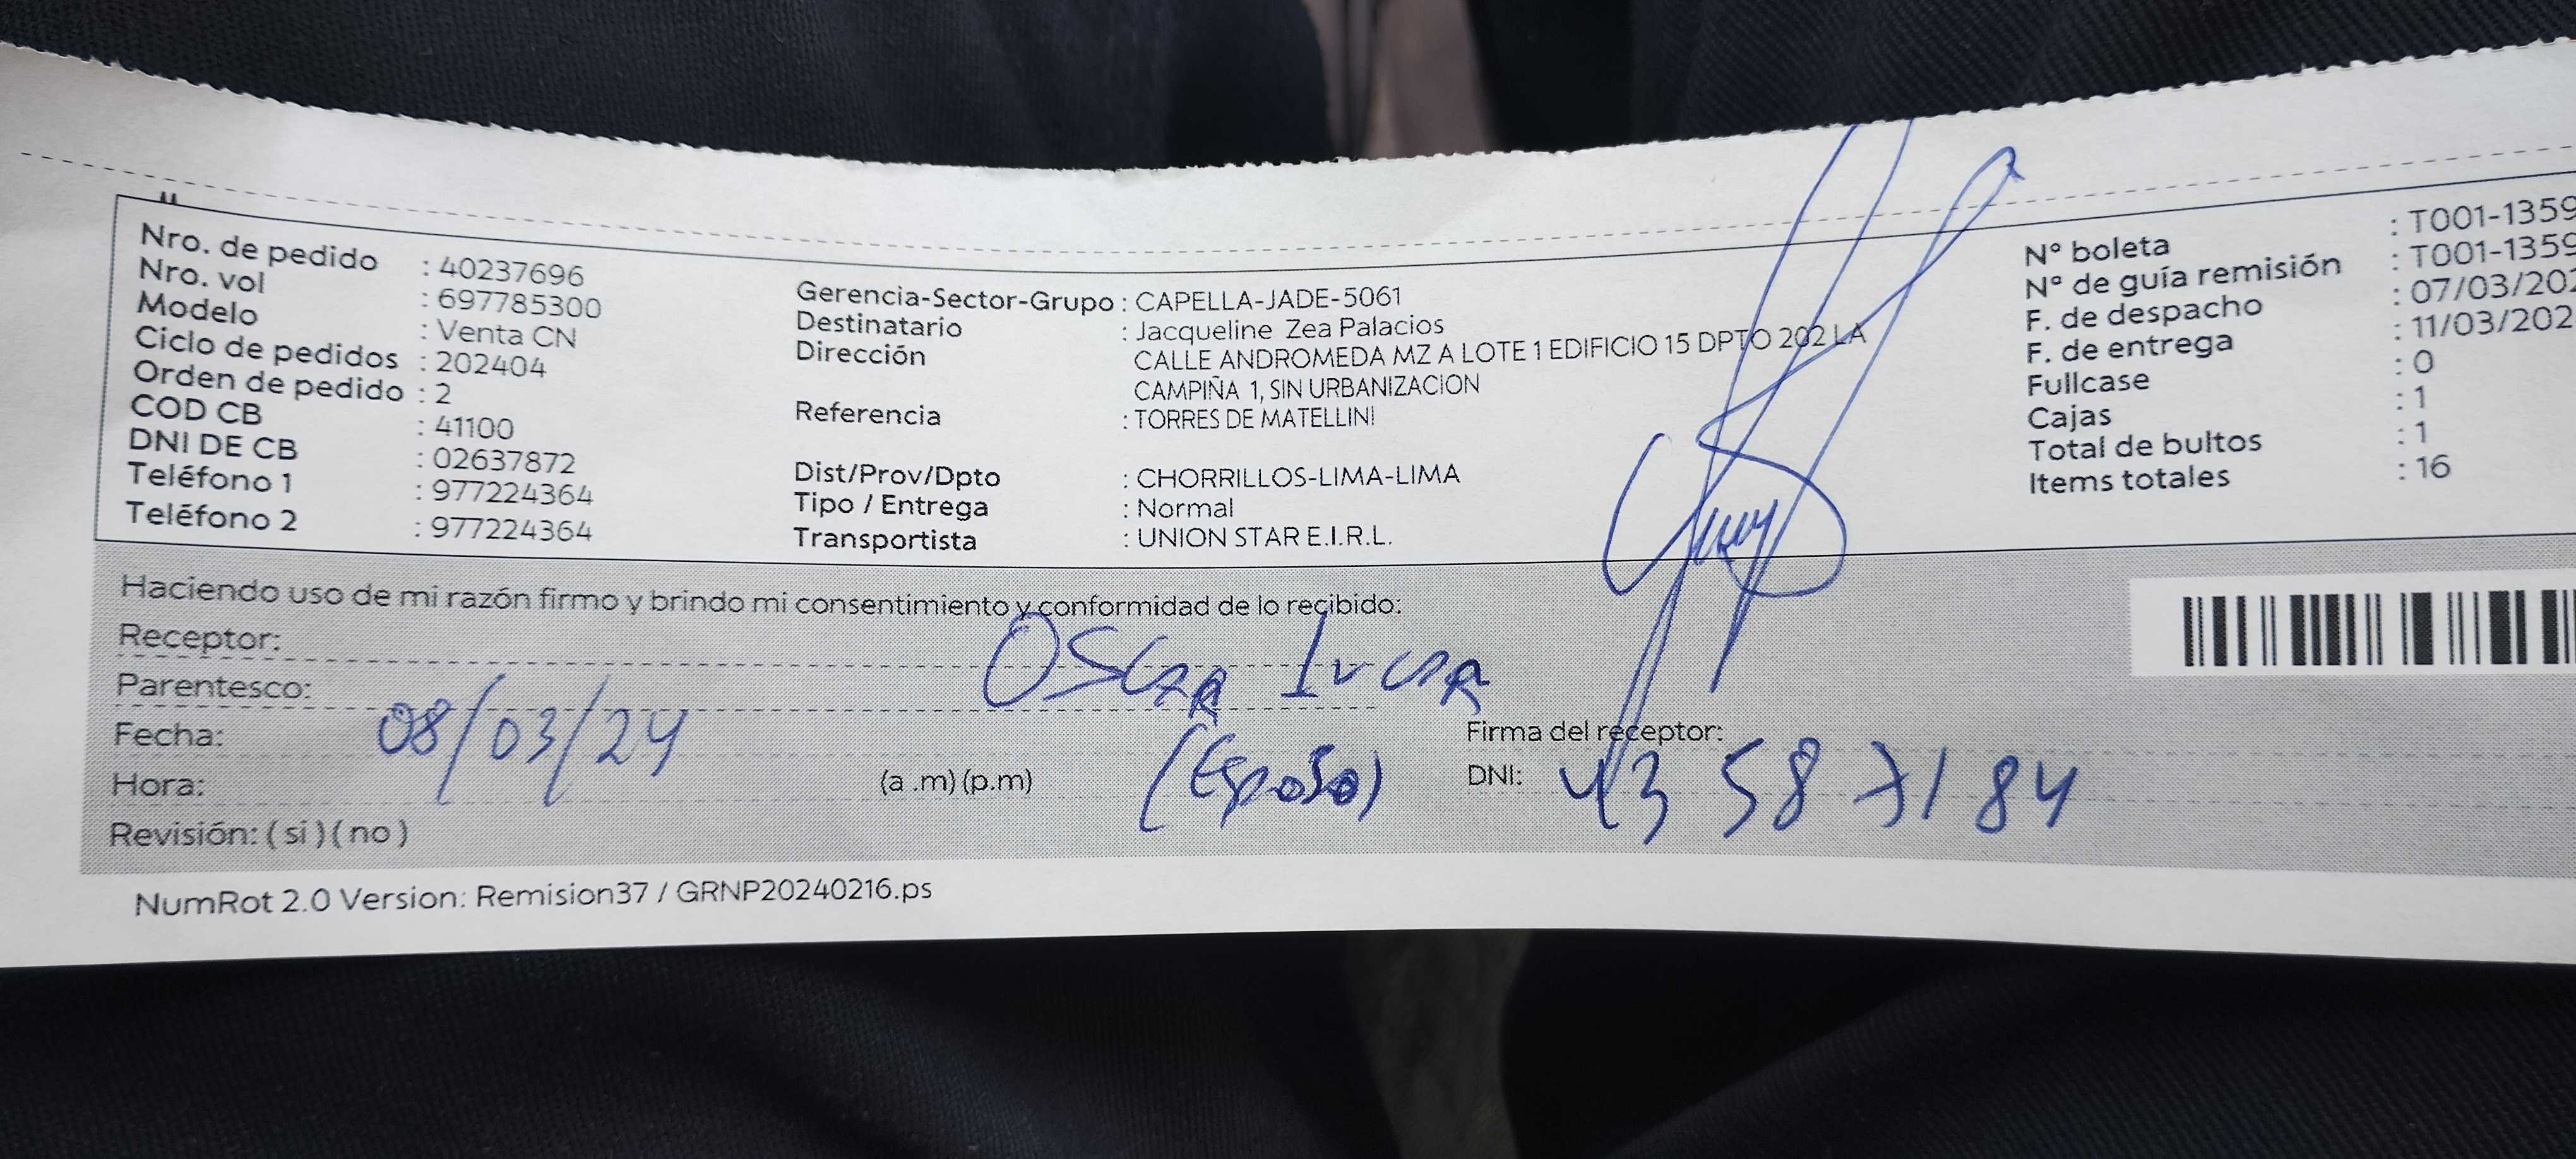 Nro. de pedido : 40237696
Nro. vol : 697785300
Modelo : Venta CN
Ciclo de pedidos : 202404
Orden de pedido : 2
COD CB : 41100
DNI DE CB : 02637872
Teléfono 1 : 977224364
Teléfono 2 : 977224364
Gerencia-Sector-Grupo : CAPELLA-JADE-5061
Destinatario : Jacqueline Zea Palacios
Dirección CALLE ANDROMEDA MZ A LOTE 1 EDIFICIO 15 DPTO 202 LA
CAMPIÑA 1, SIN URBANIZACION
Referencia : TORRES DE MATELLINI
Dist/Prov/Dpto : CHORRILLOS-LIMA-LIMA
Tipo / Entrega : Normal
Transportista : UNION STAR E.I.R.L.
N° boleta : T001-1359
N° de guía remisión : T001-1359
F. de despacho : 07/03/202
F. de entrega : 11/03/202
Fullcase : 0
Cajas : 1
Total de bultos : 1
Items totales : 16
Haciendo uso de mi razón firmo y brindo mi consentimiento y conformidad de lo recibido:
Receptor: Oscar
Parentesco:
Fecha: 08/03/24
Firma del receptor:
Hora: (a .m) (p.m) (Esposo)
DNI: 43587184
Revisión: ( si ) ( no )
NumRot 2.0 Version: Remision37 / GRNP20240216.ps